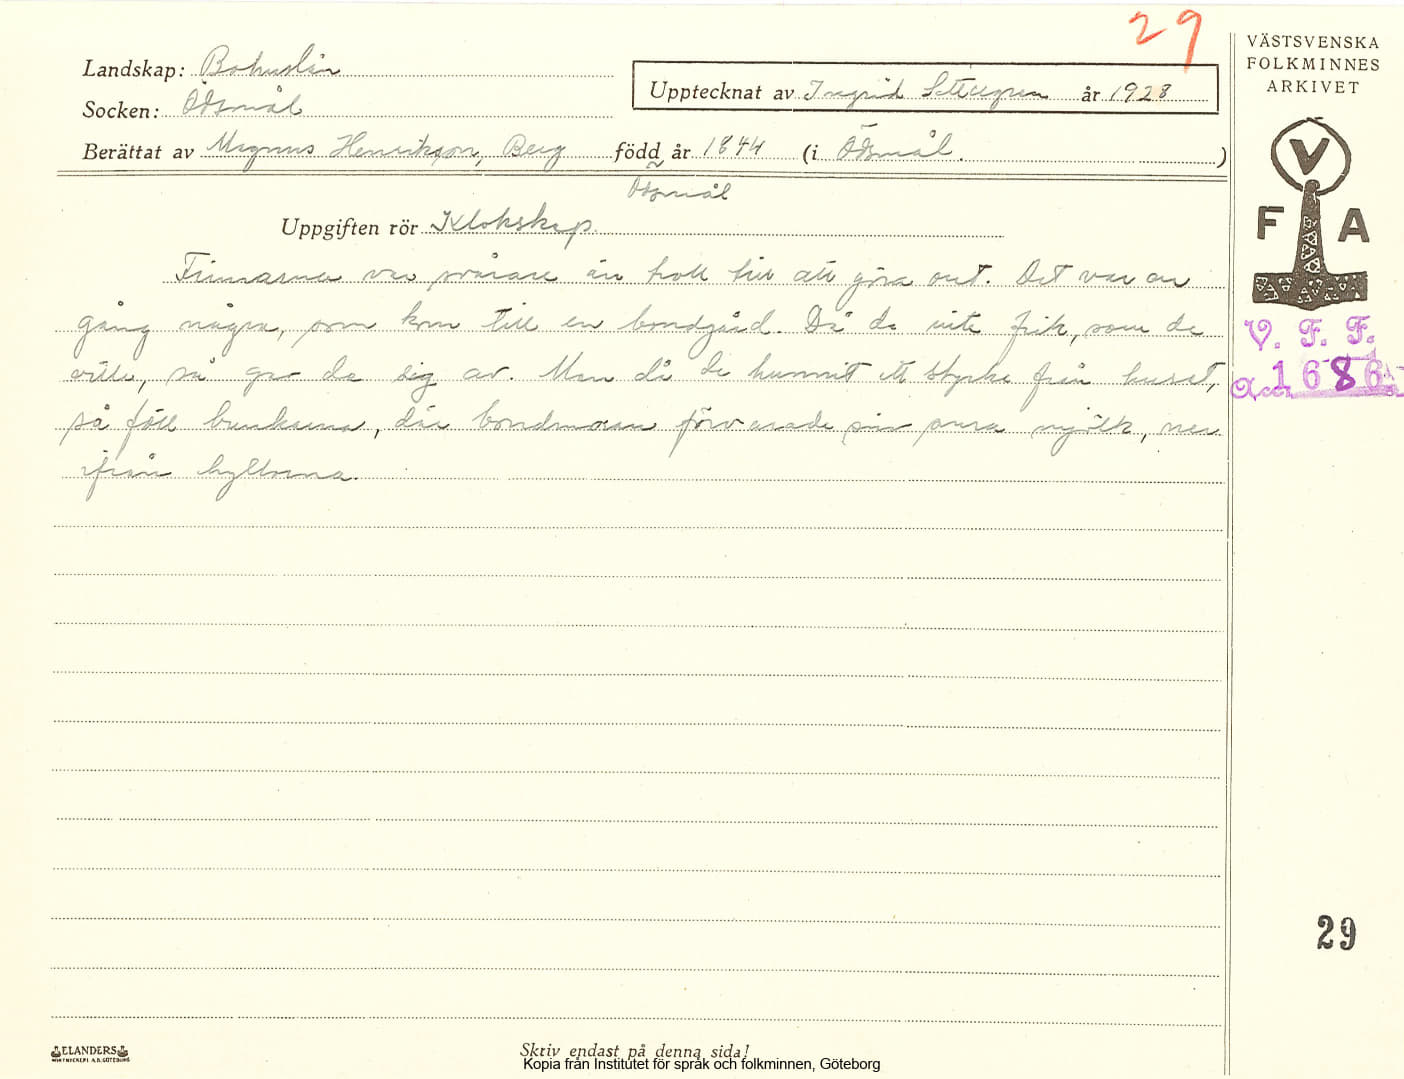 29
VÄSTSVENSKA
FOLKMINNES
ARKIVET
Landskap: Bohuslän
Upptecknat av Ingrid år 1928
Socken: Ödsmål
Berättat av Magnus Henrikson, Berg född år 1844 (i Ödsmål.)
Ödsmål
V
F A
Uppgiften rör Klokskap.
Finnarna var svårare än troll till att göra ont. Det var en
gång några, som kom till en bondgård. Då de inte fick, som de
ville, så gav de sig av. Men då de hunnit ett stycke från huset,
så föll bunkarna, där bondmoran förvarade sin sura mjölk, ner
ifrån hyllorna.
V. F. F.
Acc. 1686
29
ELANDERS
Skriv endast på denna sida!
Kopia från Institutet för språk och folkminnen, Göteborg